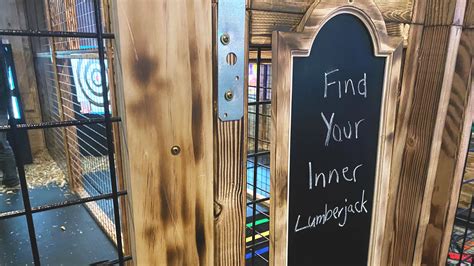 Find
Your
Inner
Lumberjack